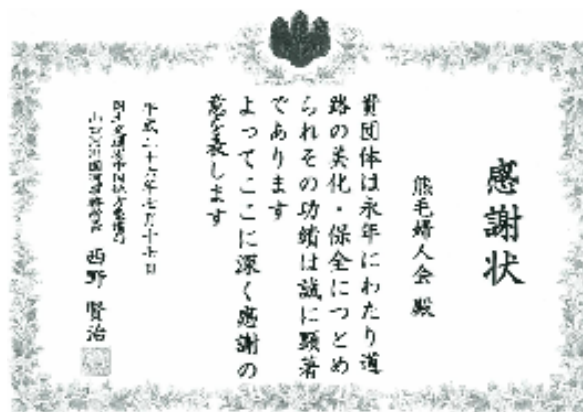 感謝状
熊毛婦人会 殿
貴団体は永年にわたり道
路の美化・保全につとめ
られその功績は誠に顕著
であります
よってここに深く感謝の
意を表します
平成二十六年七月十七日
国土交通省中国地方整備局
山口河川国道事務所長 西野 賢治